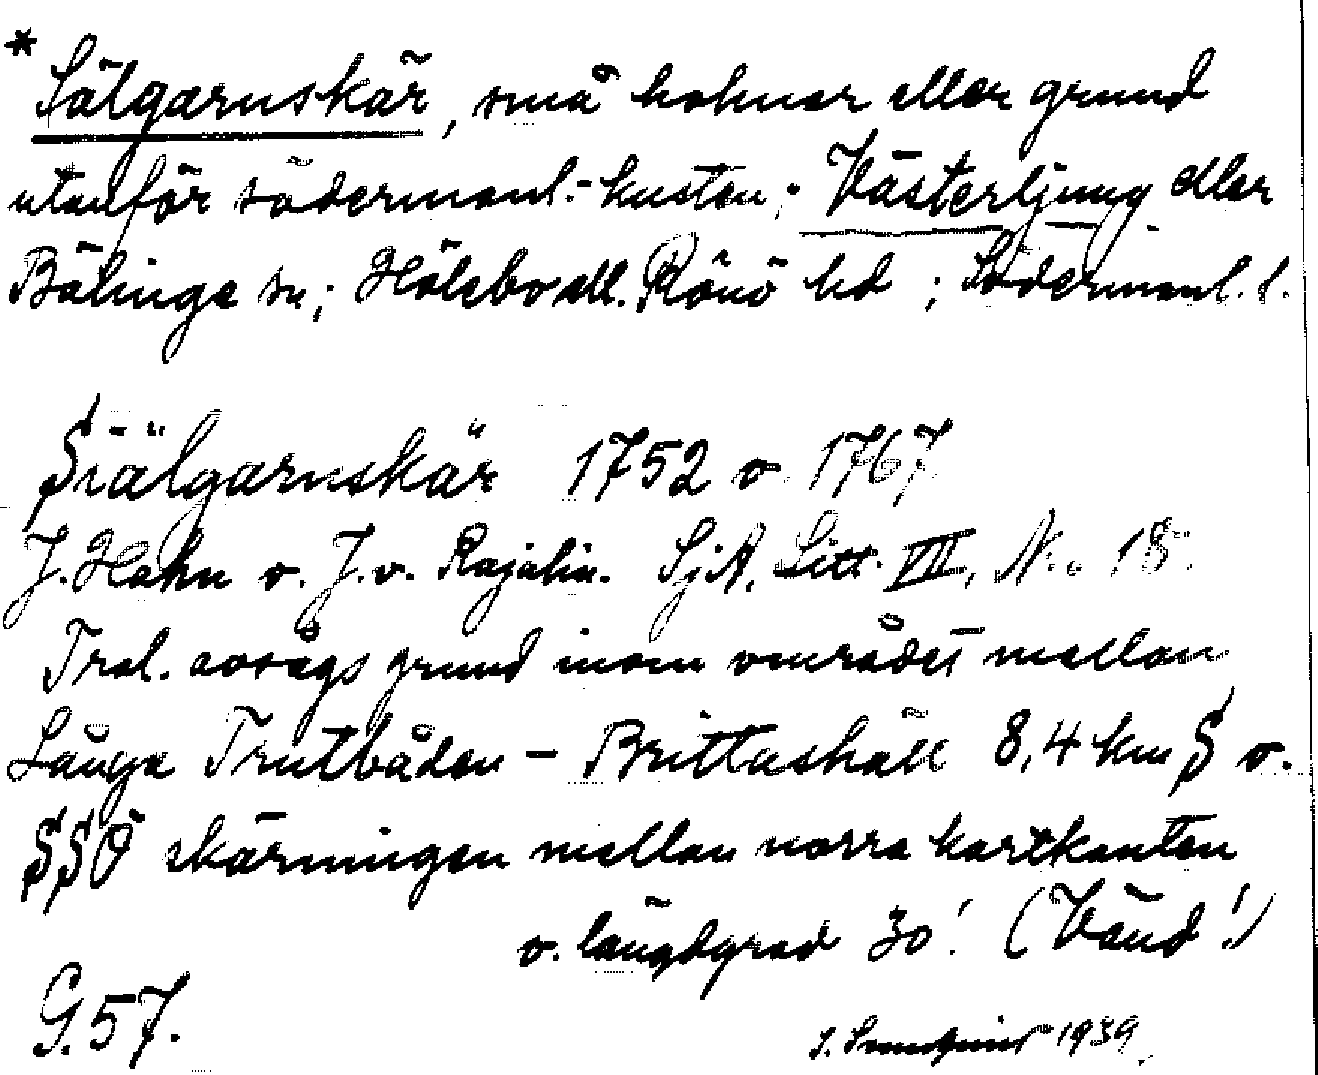 * Sälgarnskär, små holmar eller grund
utanför södermanl.-kusten; Västerljung eller
Bälinge sn; Hölebo ell. Rönö hd; Södermanl. l.
Siälgarnskär 1752 o. 1767
J. Hahn o. J. v. Rajalin. SjA, Litt. VII, N:o 18.
Trol. avsågs grund inom området mellan
Långa Trutbåden - Brittashäll 8,4 km S o.
SSÖ skärningen mellan norra kartkanten
o. längdgrad 30'. (Vänd!)
G. 57.
1939